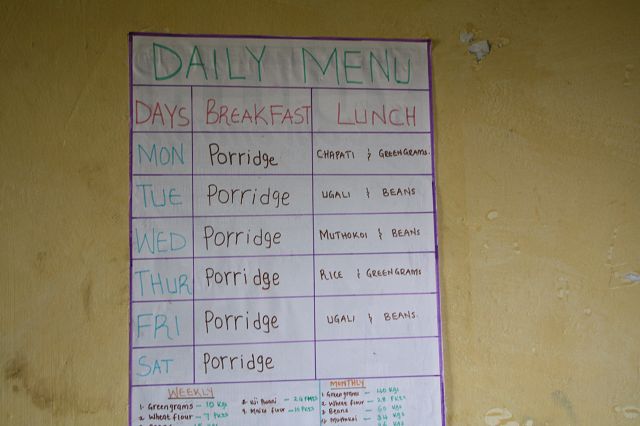 DAILY MENU
DAYS BREAKFAST LUNCH
MON Porridge CHAPATI & GREENGRAMS.
TUE Porridge UGALI & BEANS
WED Porridge MUTHOKOI & BEANS
THUR Porridge RICE & GREENGRAMS
FRI Porridge UGALI & BEANS.
SAT Porridge
WEEKLY
1. Greengrams - 10 Kgs
2. Wheat flour - 7 Pkts
4. Maize flour - 10 Pkts
MONTHLY
1. Greengrams - 40 Kgs
2. Wheat flour - 28 Pkts
3. Beans - 60 Kgs
4. Muthokoi